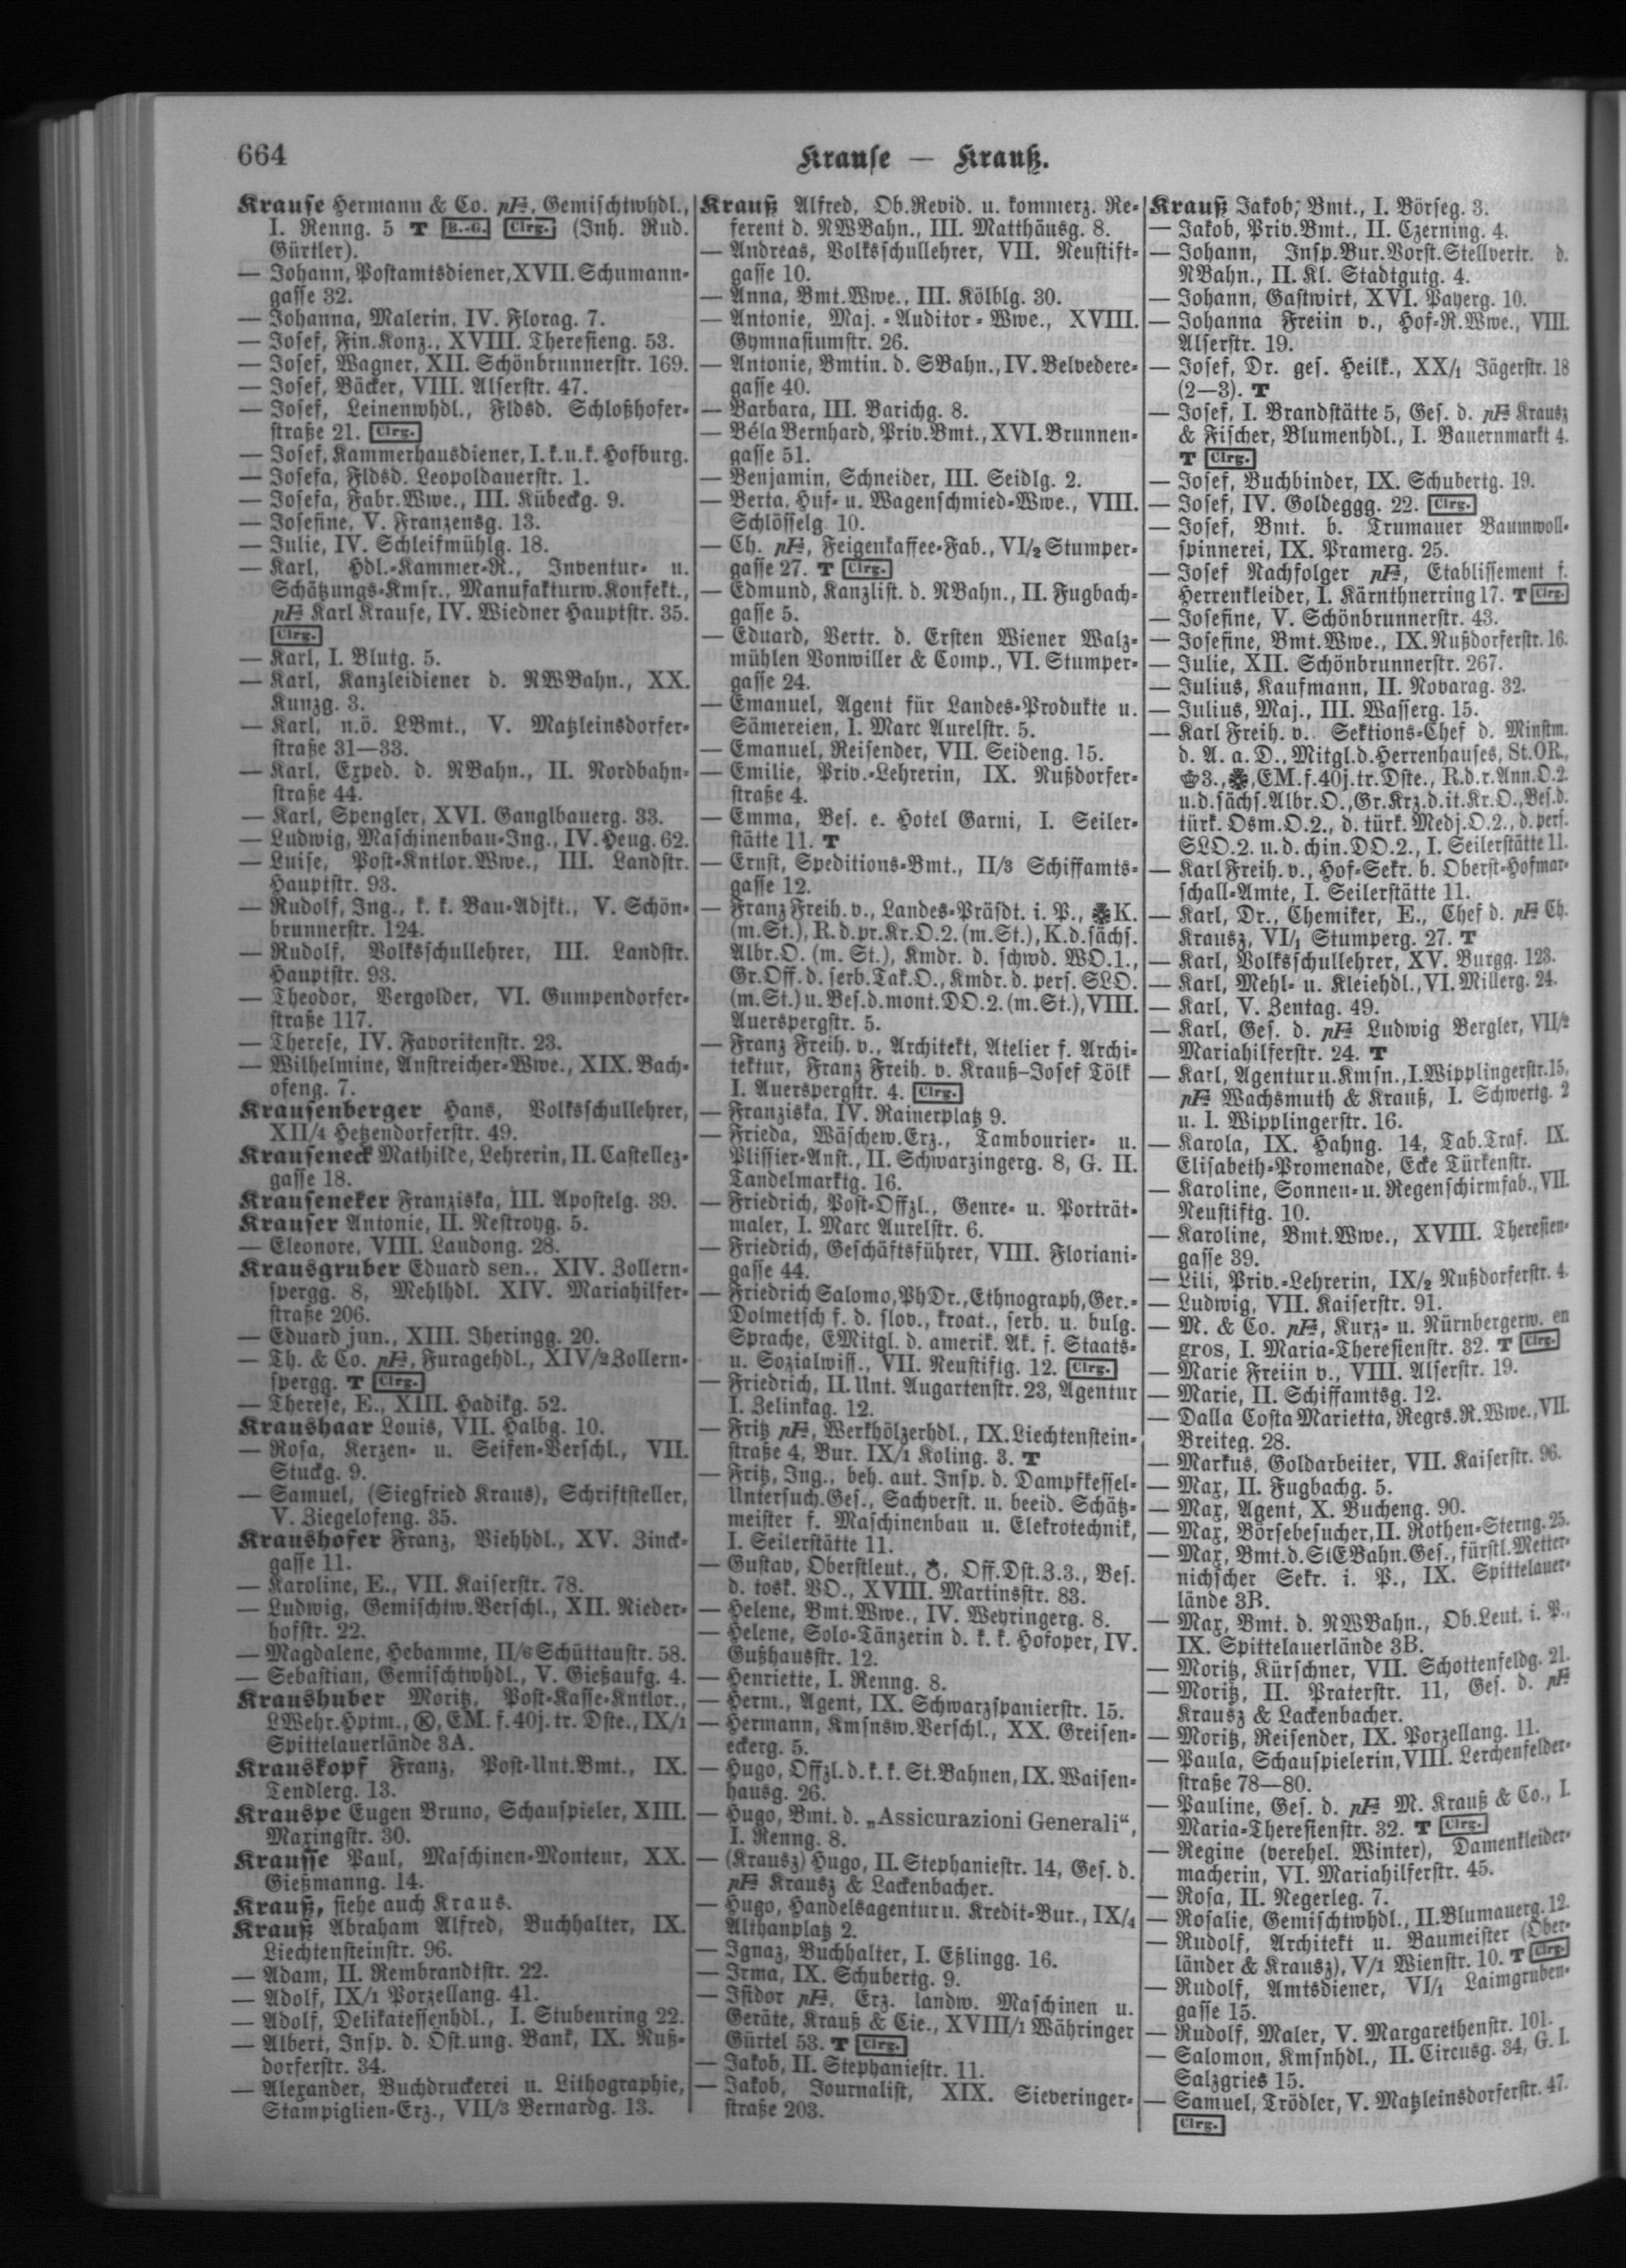 664
Krause — Krauß.
Krause Hermann & Co. pFa, Gemischtwhdl.,
I. Renng. 5 T B.-G. Clrg. (Inh. Rud.
Gürtler).
— Johann, Postamtsdiener, XVII. Schumann-
gasse 32.
— Johanna, Malerin, IV. Florag. 7.
— Josef, Fin.Konz., XVIII. Theresieng. 53.
— Josef, Wagner, XII. Schönbrunnerstr. 169.
— Josef, Bäcker, VIII. Alserstr. 47.
— Josef, Leinenwhdl., Fldsd. Schloßhofer-
straße 21. Clrg.
— Josef, Kammerhausdiener, I. k. u. k. Hofburg.
— Josefa, Fldsd. Leopoldauerstr. 1.
— Josefa, Fabr.Wwe., III. Kübeckg. 9.
— Josefine, V. Franzensg. 13.
— Julie, IV. Schleifmühlg. 18.
— Karl, Hdl.-Kammer-R., Inventur- u.
Schätzungs-Kmsr., Manufakturw.Konfekt.,
pFa Karl Krause, IV. Wiedner Hauptstr. 35.
Clrg.
— Karl, I. Blutg. 5.
— Karl, Kanzleidiener d. NWBahn., XX.
Kunzg. 3.
— Karl, n.ö. LBmt., V. Matzleinsdorfer-
straße 31—33.
— Karl, Exped. d. NBahn., II. Nordbahn-
straße 44.
— Karl, Spengler, XVI. Ganglbauerg. 33.
— Ludwig, Maschinenbau-Ing., IV. Heug. 62.
— Luise, Post-Kntlor.Wwe., III. Landstr.
Hauptstr. 93.
— Rudolf, Ing., k. k. Bau-Adjkt., V. Schön-
brunnerstr. 124.
— Rudolf, Volksschullehrer, III. Landstr.
Hauptstr. 93.
— Theodor, Vergolder, VI. Gumpendorfer-
straße 117.
— Therese, IV. Favoritenstr. 23.
— Wilhelmine, Anstreicher-Wwe., XIX. Bach-
ofeng. 7.
Krausenberger Hans, Volksschullehrer,
XII/4 Hetzendorferstr. 49.
Krauseneck Mathilde, Lehrerin, II. Castellez-
gasse 18.
Krauseneker Franziska, III. Apostelg. 39.
Krauser Antonie, II. Nestroyg. 5.
— Eleonore, VIII. Laudong. 28.
Krausgruber Eduard sen., XIV. Zollern-
spergg. 8, Mehlhdl. XIV. Mariahilfer-
straße 206.
— Eduard jun., XIII. Iheringg. 20.
— Th. & Co. pFa, Furagehdl., XIV/2 Zollern-
spergg. T Clrg.
— Therese, E., XIII. Hadikg. 52.
Kraushaar Louis, VII. Halbg. 10.
— Rosa, Kerzen- u. Seifen-Verschl., VII.
Stuckg. 9.
— Samuel, (Siegfried Kraus), Schriftsteller,
V. Ziegelofeng. 35.
Kraushofer Franz, Viehhdl., XV. Zinck-
gasse 11.
— Karoline, E., VII. Kaiserstr. 78.
— Ludwig, Gemischtw.Verschl., XII. Rieder-
hofstr. 22.
— Magdalene, Hebamme, II/6 Schüttaustr. 58.
— Sebastian, Gemischtwhdl., V. Gießaufg. 4.
Kraushuber Moritz, Post-Kasse-Kntlor.,
LWehr.Hptm., K, EM. f. 40j. tr. Dste., IX/1
Spittelauerlände 3A.
Krauskopf Franz, Post-Unt.Bmt., IX.
Tendlerg. 13.
Krauspe Eugen Bruno, Schauspieler, XIII.
Maxingstr. 30.
Krausse Paul, Maschinen-Monteur, XX.
Gießmanng. 14.
Krauß, siehe auch Kraus.
Krauß Abraham Alfred, Buchhalter, IX.
Liechtensteinstr. 96.
— Adam, II. Rembrandtstr. 22.
— Adolf, IX/1 Porzellang. 41.
— Adolf, Delikatessenhdl., I. Stubenring 22.
— Albert, Insp. d. Öst.ung. Bank, IX. Nuß-
dorferstr. 34.
— Alexander, Buchdruckerei u. Lithographie,
Stampiglien-Erz., VII/3 Bernardg. 13.
Krauß Alfred, Ob.Revid. u. kommerz. Re-
ferent d. NWBahn., III. Matthäusg. 8.
— Andreas, Volksschullehrer, VII. Neustift-
gasse 10.
— Anna, Bmt.Wwe., III. Kölblg. 30.
— Antonie, Maj.-Auditor-Wwe., XVIII.
Gymnasiumstr. 26.
— Antonie, Bmtin. d. SBahn., IV. Belvedere-
gasse 40.
— Barbara, III. Barichg. 8.
— Béla Bernhard, Priv.Bmt., XVI. Brunnen-
gasse 51.
— Benjamin, Schneider, III. Seidlg. 2.
— Berta, Huf- u. Wagenschmied-Wwe., VIII.
Schlösselg. 10.
— Ch. pFa, Feigenkaffee-Fab., VI/2 Stumper-
gasse 27. T Clrg.
— Edmund, Kanzlist. d. NBahn., II. Fugbach-
gasse 5.
— Eduard, Vertr. d. Ersten Wiener Walz-
mühlen Vonwiller & Comp., VI. Stumper-
gasse 24.
— Emanuel, Agent für Landes-Produkte u.
Sämereien, I. Marc Aurelstr. 5.
— Emanuel, Reisender, VII. Seideng. 15.
— Emilie, Priv.-Lehrerin, IX. Nußdorfer-
straße 4.
— Emma, Bes. e. Hotel Garni, I. Seiler-
stätte 11. T
— Ernst, Speditions-Bmt., II/3 Schiffamts-
gasse 12.
— Franz Freih. v., Landes-Präsdt. i. P., K.
(m.St.), R. d. pr.Kr.O.2. (m.St.), K. d. sächs.
Albr.O. (m. St.), Kmdr. d. schwd. WO.1.,
Gr.Off. d. serb.Tak.O., Kmdr. d. pers. SLO.
(m.St.) u. Bes.d.mont.DO.2. (m.St.), VIII.
Auerspergstr. 5.
— Franz Freih. v., Architekt, Atelier f. Archi-
tektur, Franz Freih. v. Krauß–Josef Tölk
I. Auerspergstr. 4. Clrg.
— Franziska, IV. Rainerplatz 9.
— Frieda, Wäschew.Erz., Tambourier- u.
Plissier-Anst., II. Schwarzingerg. 8, G. II.
Tandelmarktg. 16.
— Friedrich, Post-Offzl., Genre- u. Porträt-
maler, I. Marc Aurelstr. 6.
— Friedrich, Geschäftsführer, VIII. Floriani-
gasse 44.
— Friedrich Salomo, PhDr., Ethnograph, Ger.-
Dolmetsch f. d. slov., kroat., serb. u. bulg.
Sprache, EMitgl. d. amerik. Ak. f. Staats-
u. Sozialwiss., VII. Neustiftg. 12. Clrg.
— Friedrich, II. Unt. Augartenstr. 23, Agentur
I. Zelinkag. 12.
— Fritz pFa, Werkhölzerhdl., IX. Liechtenstein-
straße 4, Bur. IX/1 Koling. 3. T
— Fritz, Ing., beh. aut. Insp. d. Dampfkessel-
Untersuch.Ges., Sachverst. u. beeid. Schätz-
meister f. Maschinenbau u. Elekrotechnik,
I. Seilerstätte 11.
— Gustav, Oberstleut., Off.Dst.Z.3., Bes.
d. tosk. VO., XVIII. Martinsstr. 83.
— Helene, Bmt.Wwe., IV. Weyringerg. 8.
— Helene, Solo-Tänzerin d. k. k. Hofoper, IV.
Gußhausstr. 12.
— Henriette, I. Renng. 8.
— Herm., Agent, IX. Schwarzspanierstr. 15.
— Hermann, Kmsnsw.Verschl., XX. Greisen-
eckerg. 5.
— Hugo, Offzl. d. k. k. St.Bahnen, IX. Waisen-
hausg. 26.
— Hugo, Bmt. d. „Assicurazioni Generali“,
I. Renng. 8.
— (Krausz) Hugo, II. Stephaniestr. 14, Ges. d.
pFa Krausz & Lackenbacher.
— Hugo, Handelsagentur u. Kredit-Bur., IX/4
Althanplatz 2.
— Ignaz, Buchhalter, I. Eßlingg. 16.
— Irma, IX. Schubertg. 9.
— Isidor pFa, Erz. landw. Maschinen u.
Geräte, Krauß & Cie., XVIII/1 Währinger
Gürtel 53. T Clrg.
— Jakob, II. Stephaniestr. 11.
— Jakob, Journalist, XIX. Sieveringer-
straße 203.
Krauß Jakob, Bmt., I. Börseg. 3.
— Jakob, Priv.Bmt., II. Czerning. 4.
— Johann, Insp.Bur.Vorst.Stellvertr. d.
NBahn., II. Kl. Stadtgutg. 4.
— Johann, Gastwirt, XVI. Payerg. 10.
— Johanna Freiin v., Hof-R.Wwe., VIII.
Alserstr. 19.
— Josef, Dr. ges. Heilk., XX/1 Jägerstr. 18
(2—3). T
— Josef, I. Brandstätte 5, Ges. d. pFa Krausz
& Fischer, Blumenhdl., I. Bauernmarkt 4.
T Clrg.
— Josef, Buchbinder, IX. Schubertg. 19.
— Josef, IV. Goldeggg. 22. Clrg.
— Josef, Bmt. b. Trumauer Baumwoll-
spinnerei, IX. Pramerg. 25.
— Josef Nachfolger pFa, Etablissement f.
Herrenkleider, I. Kärnthnerring 17. T Clrg.
— Josefine, V. Schönbrunnerstr. 43.
— Josefine, Bmt.Wwe., IX. Nußdorferstr. 16.
— Julie, XII. Schönbrunnerstr. 267.
— Julius, Kaufmann, II. Novarag. 32.
— Julius, Maj., III. Wasserg. 15.
— Karl Freih. v. Sektions-Chef d. Minstm.
d. A. a. D., Mitgl.d.Herrenhauses, St.OR.,
3., EM.f.40j.tr.Dste., R.d.r.Ann.O.2.
u.d.sächs.Albr.O., Gr.Krz.d.it.Kr.O., Bes.d.
türk. Osm.O.2., d. türk. Medj.O.2., d. pers.
SLO.2. u. d. chin. DO.2., I. Seilerstätte 11.
— Karl Freih. v., Hof-Sekr. b. Oberst-Hofmar-
schall-Amte, I. Seilerstätte 11.
— Karl, Dr., Chemiker, E., Chef d. pFa Ch.
Krausz, VI/1 Stumperg. 27. T
— Karl, Volksschullehrer, XV. Burgg. 123.
— Karl, Mehl- u. Kleiehdl., VI. Millerg. 24.
— Karl, V. Zentag. 49.
— Karl, Ges. d. pFa Ludwig Bergler, VII/2
Mariahilferstr. 24. T
— Karl, Agentur u. Kmsn., I. Wipplingerstr. 15,
pFa Wachsmuth & Krauß, I. Schwertg. 2
u. I. Wipplingerstr. 16.
— Karola, IX. Hahng. 14, Tab.Traf. IX.
Elisabeth-Promenade, Ecke Türkenstr.
— Karoline, Sonnen- u. Regenschirmfab., VII.
Neustiftg. 10.
— Karoline, Bmt.Wwe., XVIII. Theresien-
gasse 39.
— Lili, Priv.-Lehrerin, IX/2 Nußdorferstr. 4.
— Ludwig, VII. Kaiserstr. 91.
— M. & Co. pFa, Kurz- u. Nürnbergerw. en
gros, I. Maria-Theresienstr. 32. T Clrg.
— Marie Freiin v., VIII. Alserstr. 19.
— Marie, II. Schiffamtsg. 12.
— Dalla Costa Marietta, Regrs.R.Wwe., VII.
Breiteg. 28.
— Markus, Goldarbeiter, VII. Kaiserstr. 96.
— Max, II. Fugbachg. 5.
— Max, Agent, X. Bucheng. 90.
— Max, Börsebesucher, II. Rothen-Sterng. 25.
— Max, Bmt.d.StEBahn.Ges., fürstl.Metter-
nichscher Sekr. i. P., IX. Spittelauer-
lände 3B.
— Max, Bmt. d. NWBahn., Ob.Leut. i. P.,
IX. Spittelauerlände 3B.
— Moritz, Kürschner, VII. Schottenfeldg. 21.
— Moritz, II. Praterstr. 11, Ges. d. pFa
Krausz & Lackenbacher.
— Moritz, Reisender, IX. Porzellang. 11.
— Paula, Schauspielerin, VIII. Lerchenfelder-
straße 78—80.
— Pauline, Ges. d. pFa M. Krauß & Co., I.
Maria-Theresienstr. 32. T Clrg.
— Regine (verehel. Winter), Damenkleider-
macherin, VI. Mariahilferstr. 45.
— Rosa, II. Negerleg. 7.
— Rosalie, Gemischtwhdl., II. Blumauerg. 12.
— Rudolf, Architekt u. Baumeister (Ober-
länder & Krausz), V/1 Wienstr. 10. T Clrg.
— Rudolf, Amtsdiener, VI/1 Laimgruben-
gasse 15.
— Rudolf, Maler, V. Margarethenstr. 101.
— Salomon, Kmsnhdl., II. Circusg. 34, G. I.
Salzgries 15.
— Samuel, Trödler, V. Matzleinsdorferstr. 47.
Clrg.